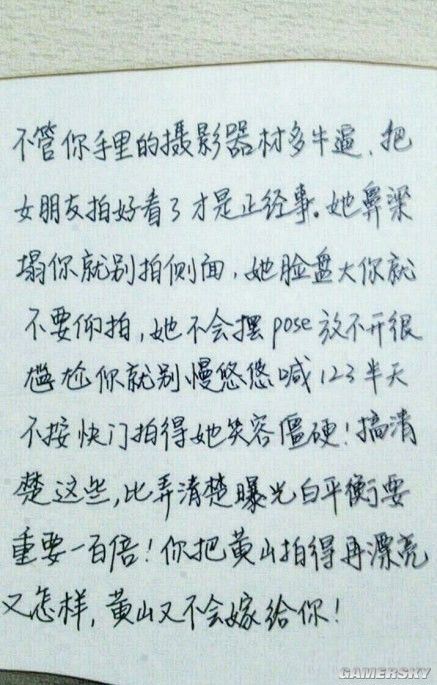 不管你手里的摄影器材多牛逼，把
女朋友拍好看了才是正经事。她鼻梁
塌你就别拍侧面，她脸盘大你就
不要仰拍，她不会摆pose放不开很
尴尬你就别慢悠悠喊123半天
不按快门拍得她笑容僵硬！搞清
楚这些，比弄清楚曝光白平衡要
重要一百倍！你把黄山拍得再漂亮
又怎样，黄山又不会嫁给你！
GAMERSKY